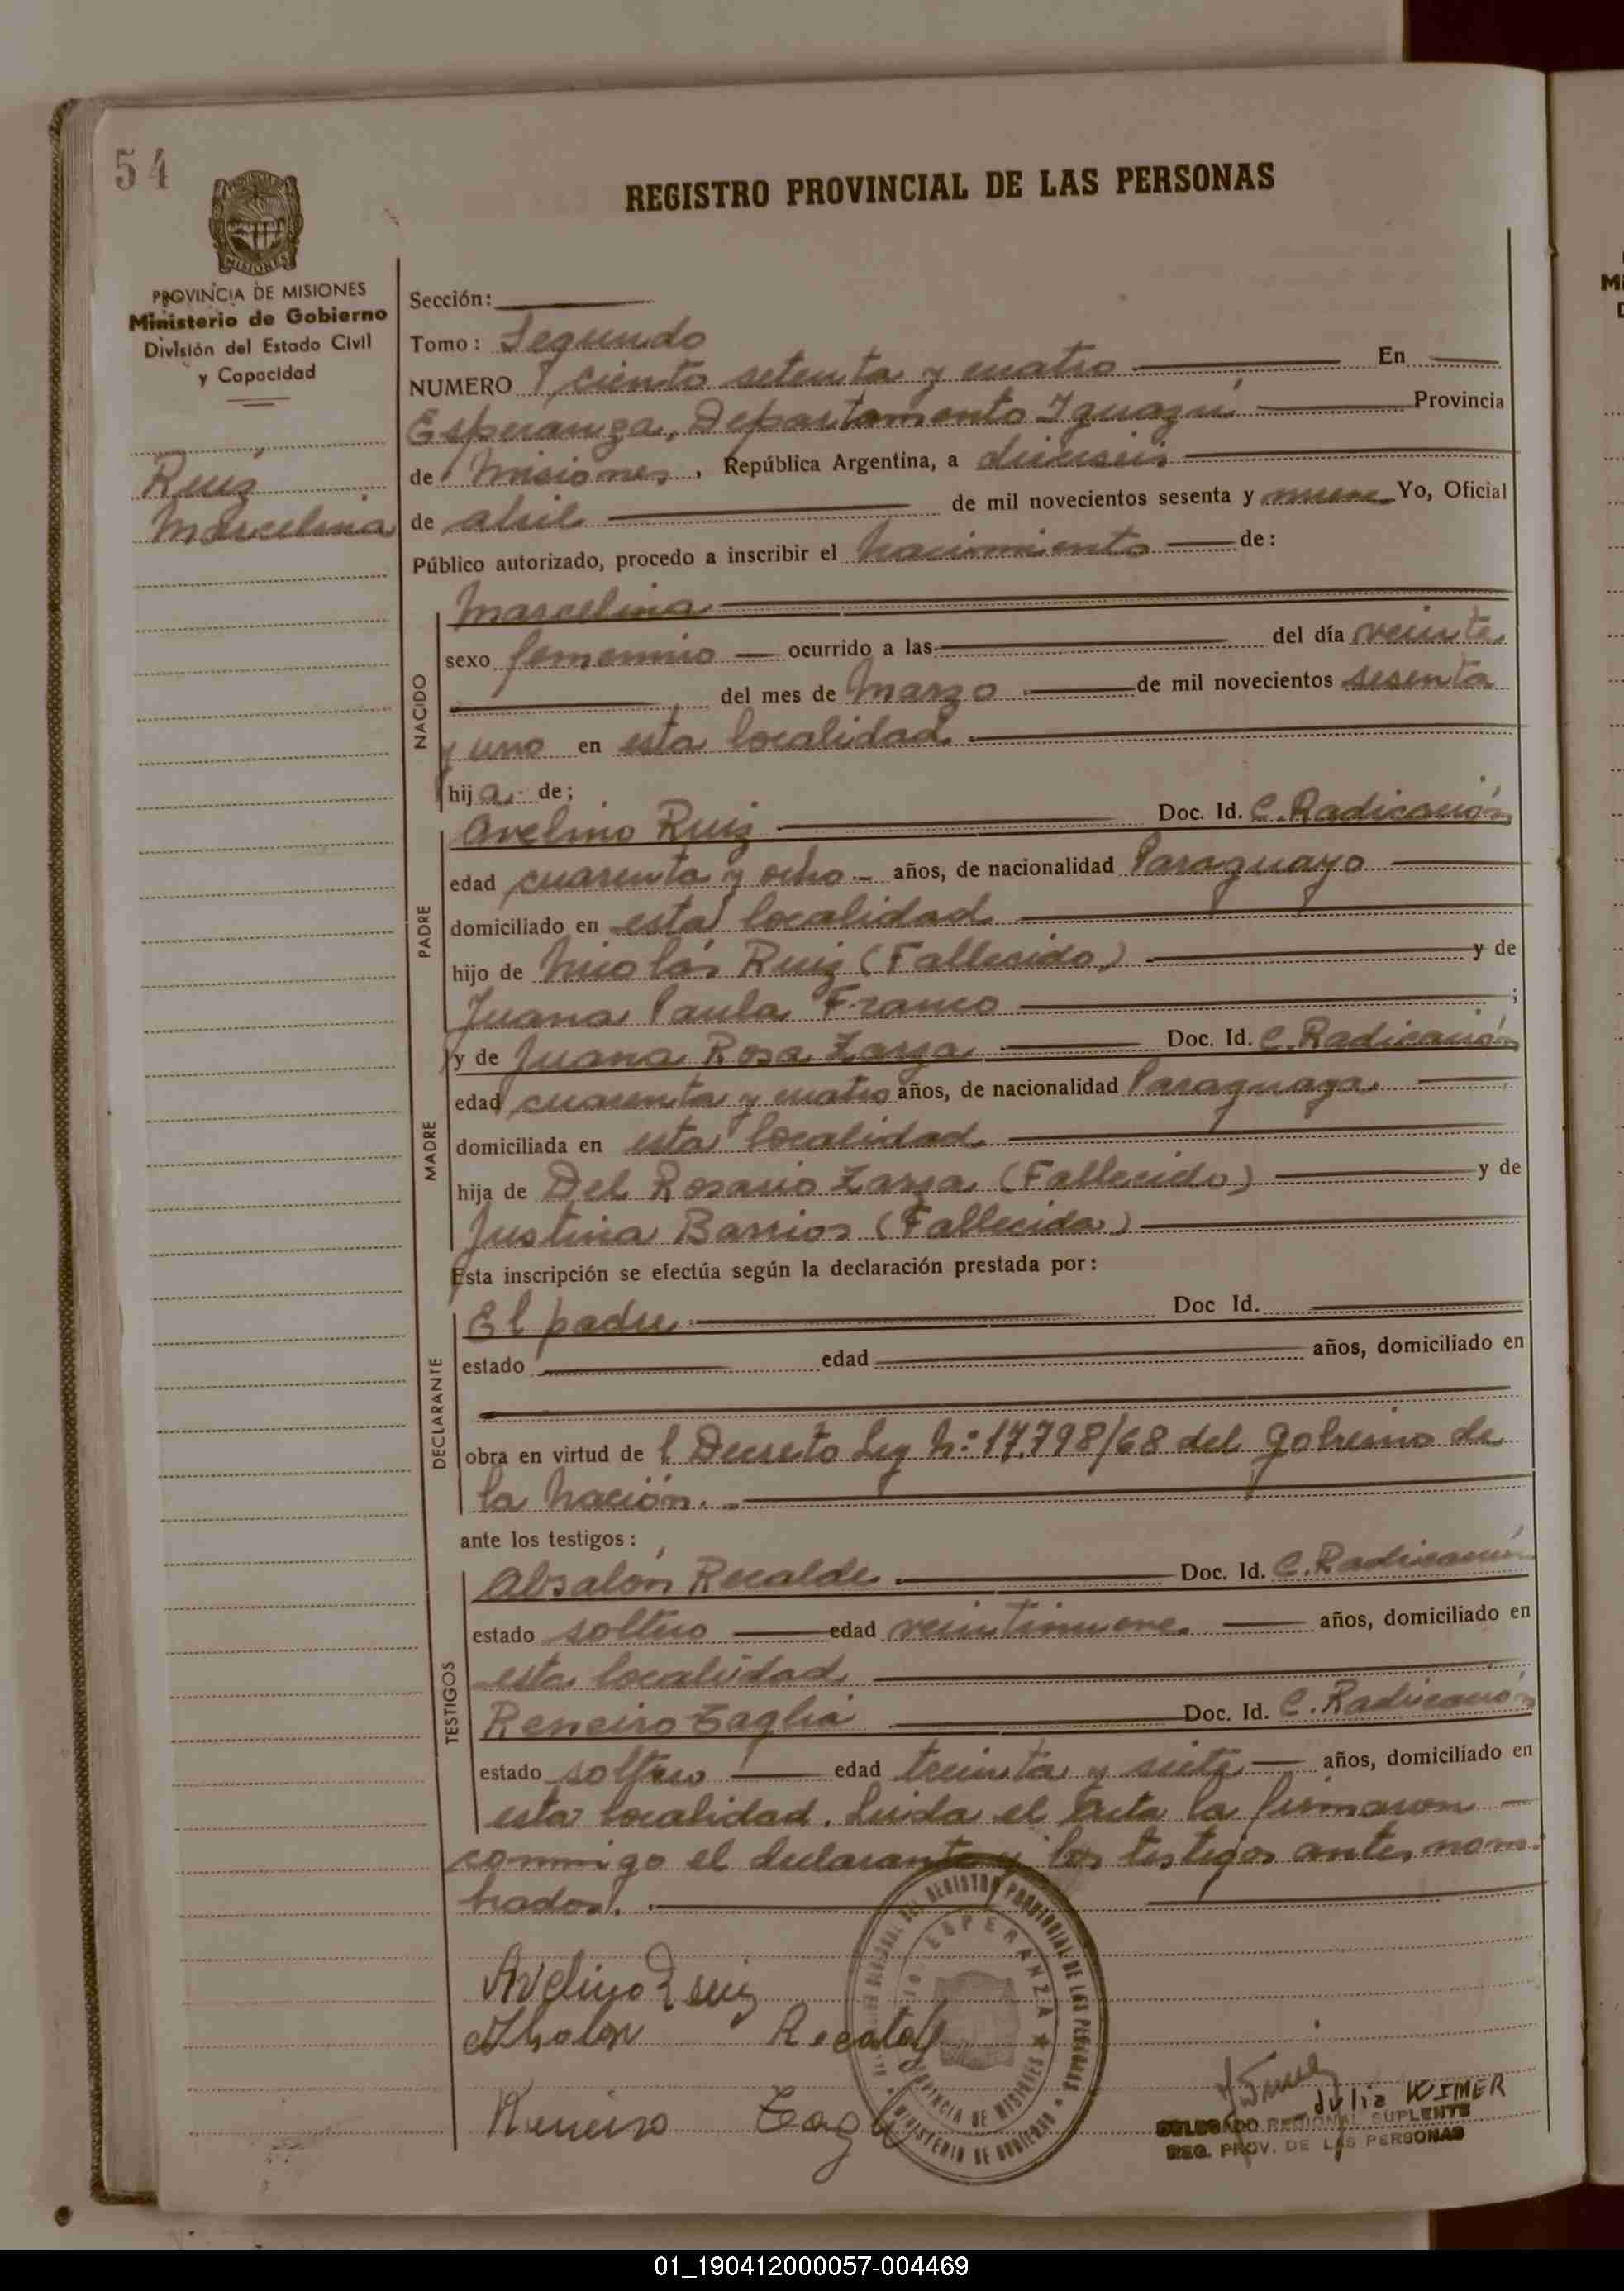 54
REGISTRO PROVINCIAL DE LAS PERSONAS
MISIONES
PROVINCIA DE MISIONES
Ministerio de Gobierno
División del Estado Civil
y Capacidad
Ruiz
Marcelina
Sección:
Tomo: Segundo
NUMERO ciento setenta y cuatro En
Esperanza, Departamento Iguazú Provincia
de Misiones, República Argentina, a dieciseis
de abril de mil novecientos sesenta y nueve Yo, Oficial
Público autorizado, procedo a inscribir el nacimiento de:
NACIDO
Marcelina
sexo femenino ocurrido a las del día veinte
del mes de Marzo de mil novecientos sesenta
y uno en esta localidad.
hij a. de;
PADRE
Avelino Ruiz Doc. Id. C. Radicación
edad cuarenta y ocho años, de nacionalidad Paraguayo
domiciliado en esta localidad
hijo de Nicolás Ruiz (Fallecido) y de
Juana Paula Franco ;
MADRE
y de Juana Rosa Zarza Doc. Id. C. Radicación
edad cuarenta y cuatro años, de nacionalidad Paraguaya.
domiciliada en esta localidad.
hija de Del Rosario Zarza (Fallecido) y de
Justina Barrios (Fallecida)
Esta inscripción se efectúa según la declaración prestada por:
DECLARANTE
El padre Doc Id.
estado edad años, domiciliado en
obra en virtud de l Decreto Ley N.º 17.798/68 del gobierno de
la Nación.
ante los testigos:
TESTIGOS
Absalón Recalde Doc. Id. C. Radicación
estado soltero edad veintinueve años, domiciliado en
esta localidad
Reneiro Taglia Doc. Id. C. Radicación
estado soltero edad treinta y siete años, domiciliado en
esta localidad. Leida el acta la firmaron
conmigo el declarante y los testigos antes nom-
brados.
Avelino Ruiz
Recalde
Reneiro
REGISTRO PROVINCIAL DE LAS PERSONAS
ESPERANZA
PROVINCIA DE MISIONES
MINISTERIO DE GOBIERNO
Julia WIMER
DELEGADO REGIONAL SUPLENTE
REG. PROV. DE LAS PERSONAS
01_190412000057-004469